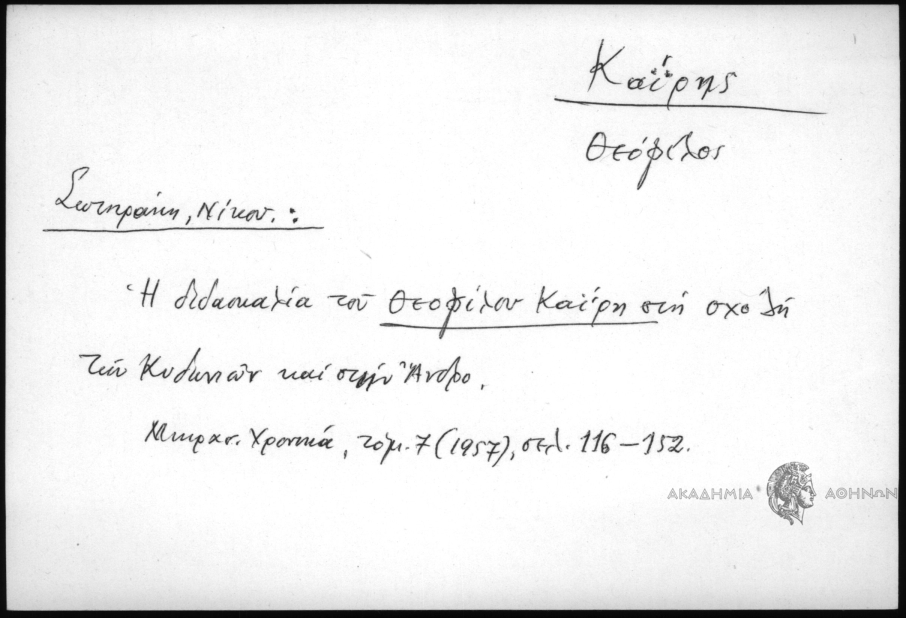 Καΐρης
Θεόφιλος
Σωτηράκη, Νίκου. :
Ἡ διδασκαλία τοῦ Θεοφίλου Καΐρη στή σχολή
τῶν Κυδωνιῶν καί στήν Ἄνδρο.
Μικρασ. Χρονικά, τόμ. 7 (1957), σελ. 116–152.
ΑΚΑΔΗΜΙΑ ΑΘΗΝΩΝ